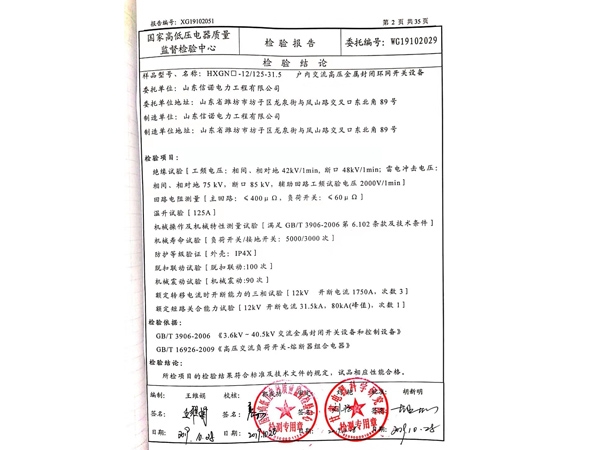 报告编号: XG19102051 第 2 页 共35页
国家高低压电器质量监督检验中心 检验报告 委托编号: WG19102029
检验结论
样品型号、名称: HXGN□-12/125-31.5 户内交流高压金属封闭环网开关设备
委托单位: 山东信诺电力工程有限公司
委托单位地址: 山东省潍坊市坊子区龙泉街与凤山路交叉口东北角 89 号
制造单位: 山东信诺电力工程有限公司
制造单位地址: 山东省潍坊市坊子区龙泉街与凤山路交叉口东北角 89 号
检验项目:
绝缘试验[工频电压: 相间、相对地 42kV/1min, 断口 48kV/1min; 雷电冲击电压:
相间、相对地 75 kV, 断口 85 kV, 辅助回路工频试验电压 2000V/1min]
回路电阻测量[主回路: ≤400μΩ, 负荷开关: ≤60μΩ]
温升试验[125A]
机械操作及机械特性测量试验[满足 GB/T 3906-2006 第 6.102 条款及技术条件]
机械寿命试验[负荷开关/接地开关: 5000/3000 次]
防护等级验证[外壳: IP4X]
脱扣联动试验[脱扣联动:100 次]
机械震动试验[机械震动:90 次]
额定转移电流时开断能力的三相试验[12kV 开断电流 1750A, 次数 3]
额定短路关合能力试验[12kV 开断电流 31.5kA, 80kA(峰值), 次数 1]
检验依据:
GB/T 3906-2006 《3.6kV-40.5kV 交流金属封闭开关设备和控制设备》
GB/T 16926-2009《高压交流负荷开关-熔断器组合电器》
检验结论:
所检项目的检验结果符合标准及技术文件的规定, 试品相应性能合格。
编制: 王维娟 校核: 批准: 胡新明
签名: 签名: 签名:
日期: 日期: 日期:
检测专用章 检测专用章